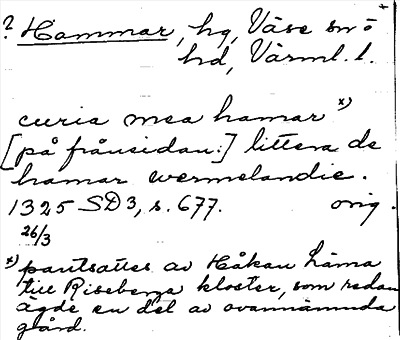 ? Hammar, hg, Väse sn o
hd, Värml. l.
curia mea hamar x)
[på frånsidan:] littera de
hamar wermelandie.
1325 SD 3, s. 677. orig.
26/3
x) pantsattes av Håkan Läma
till Riseberga kloster, som redan
ägde en del av ovannämnda
gård.